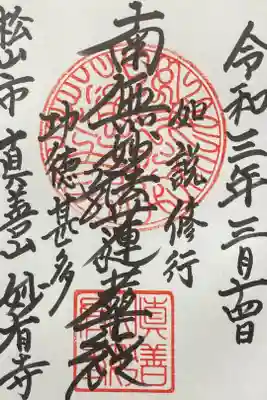 令和三年三月十四日
如説修行
南無妙法蓮華経
功徳甚多
松山市 真善山 妙有寺
眞善